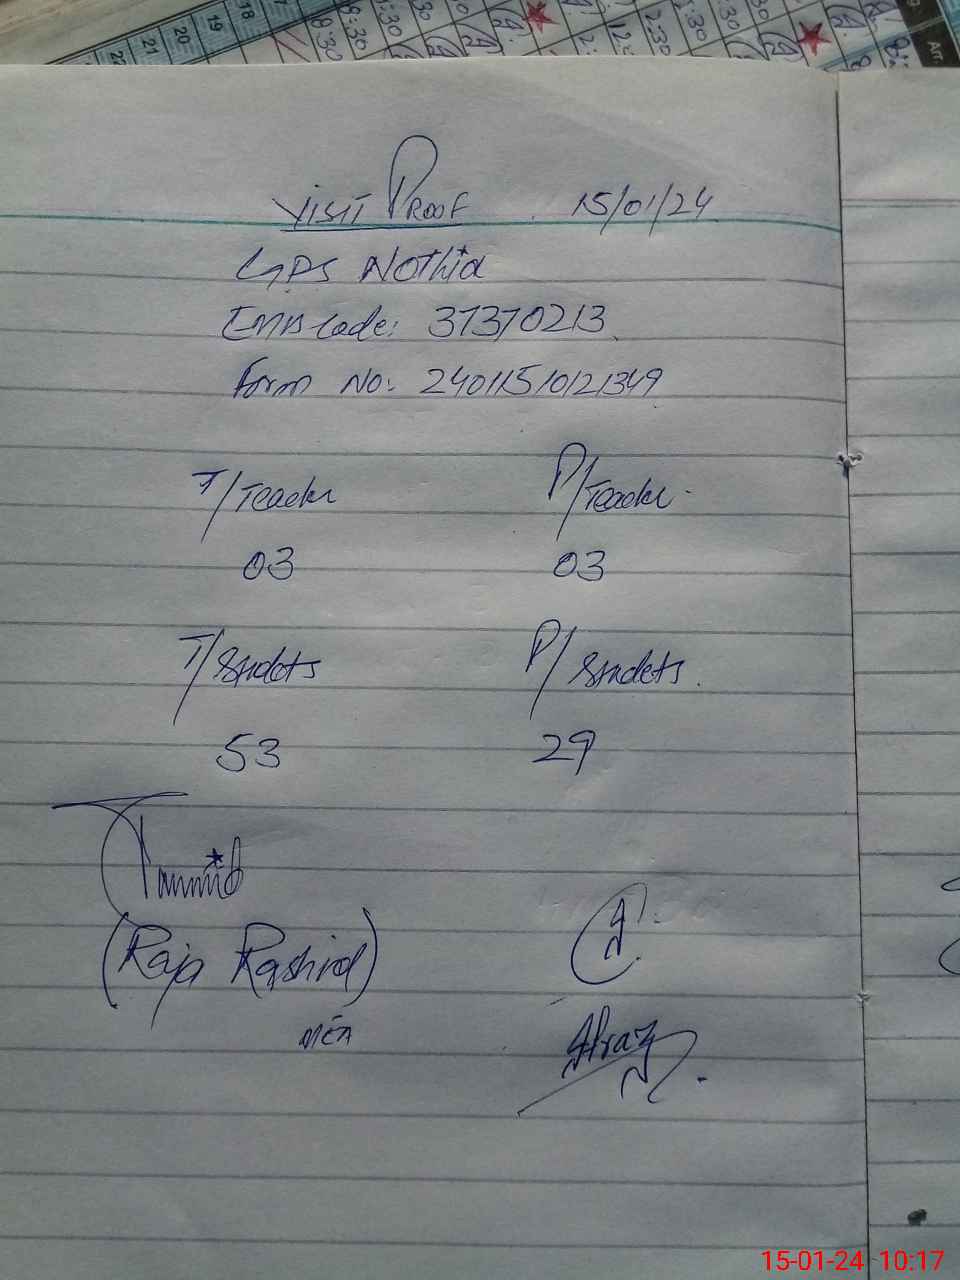 22 21 20 19 18 17 8:30
Arr.
VISIT PROOF 15/01/24
GPS Nothia
EMIS Code: 37370213
Form No: 24011510121349
T/Teacher P/Teacher
03 03
T/Studets P/Studets
53 29
(Raja Rashid)
MEA
15-01-24 10:17